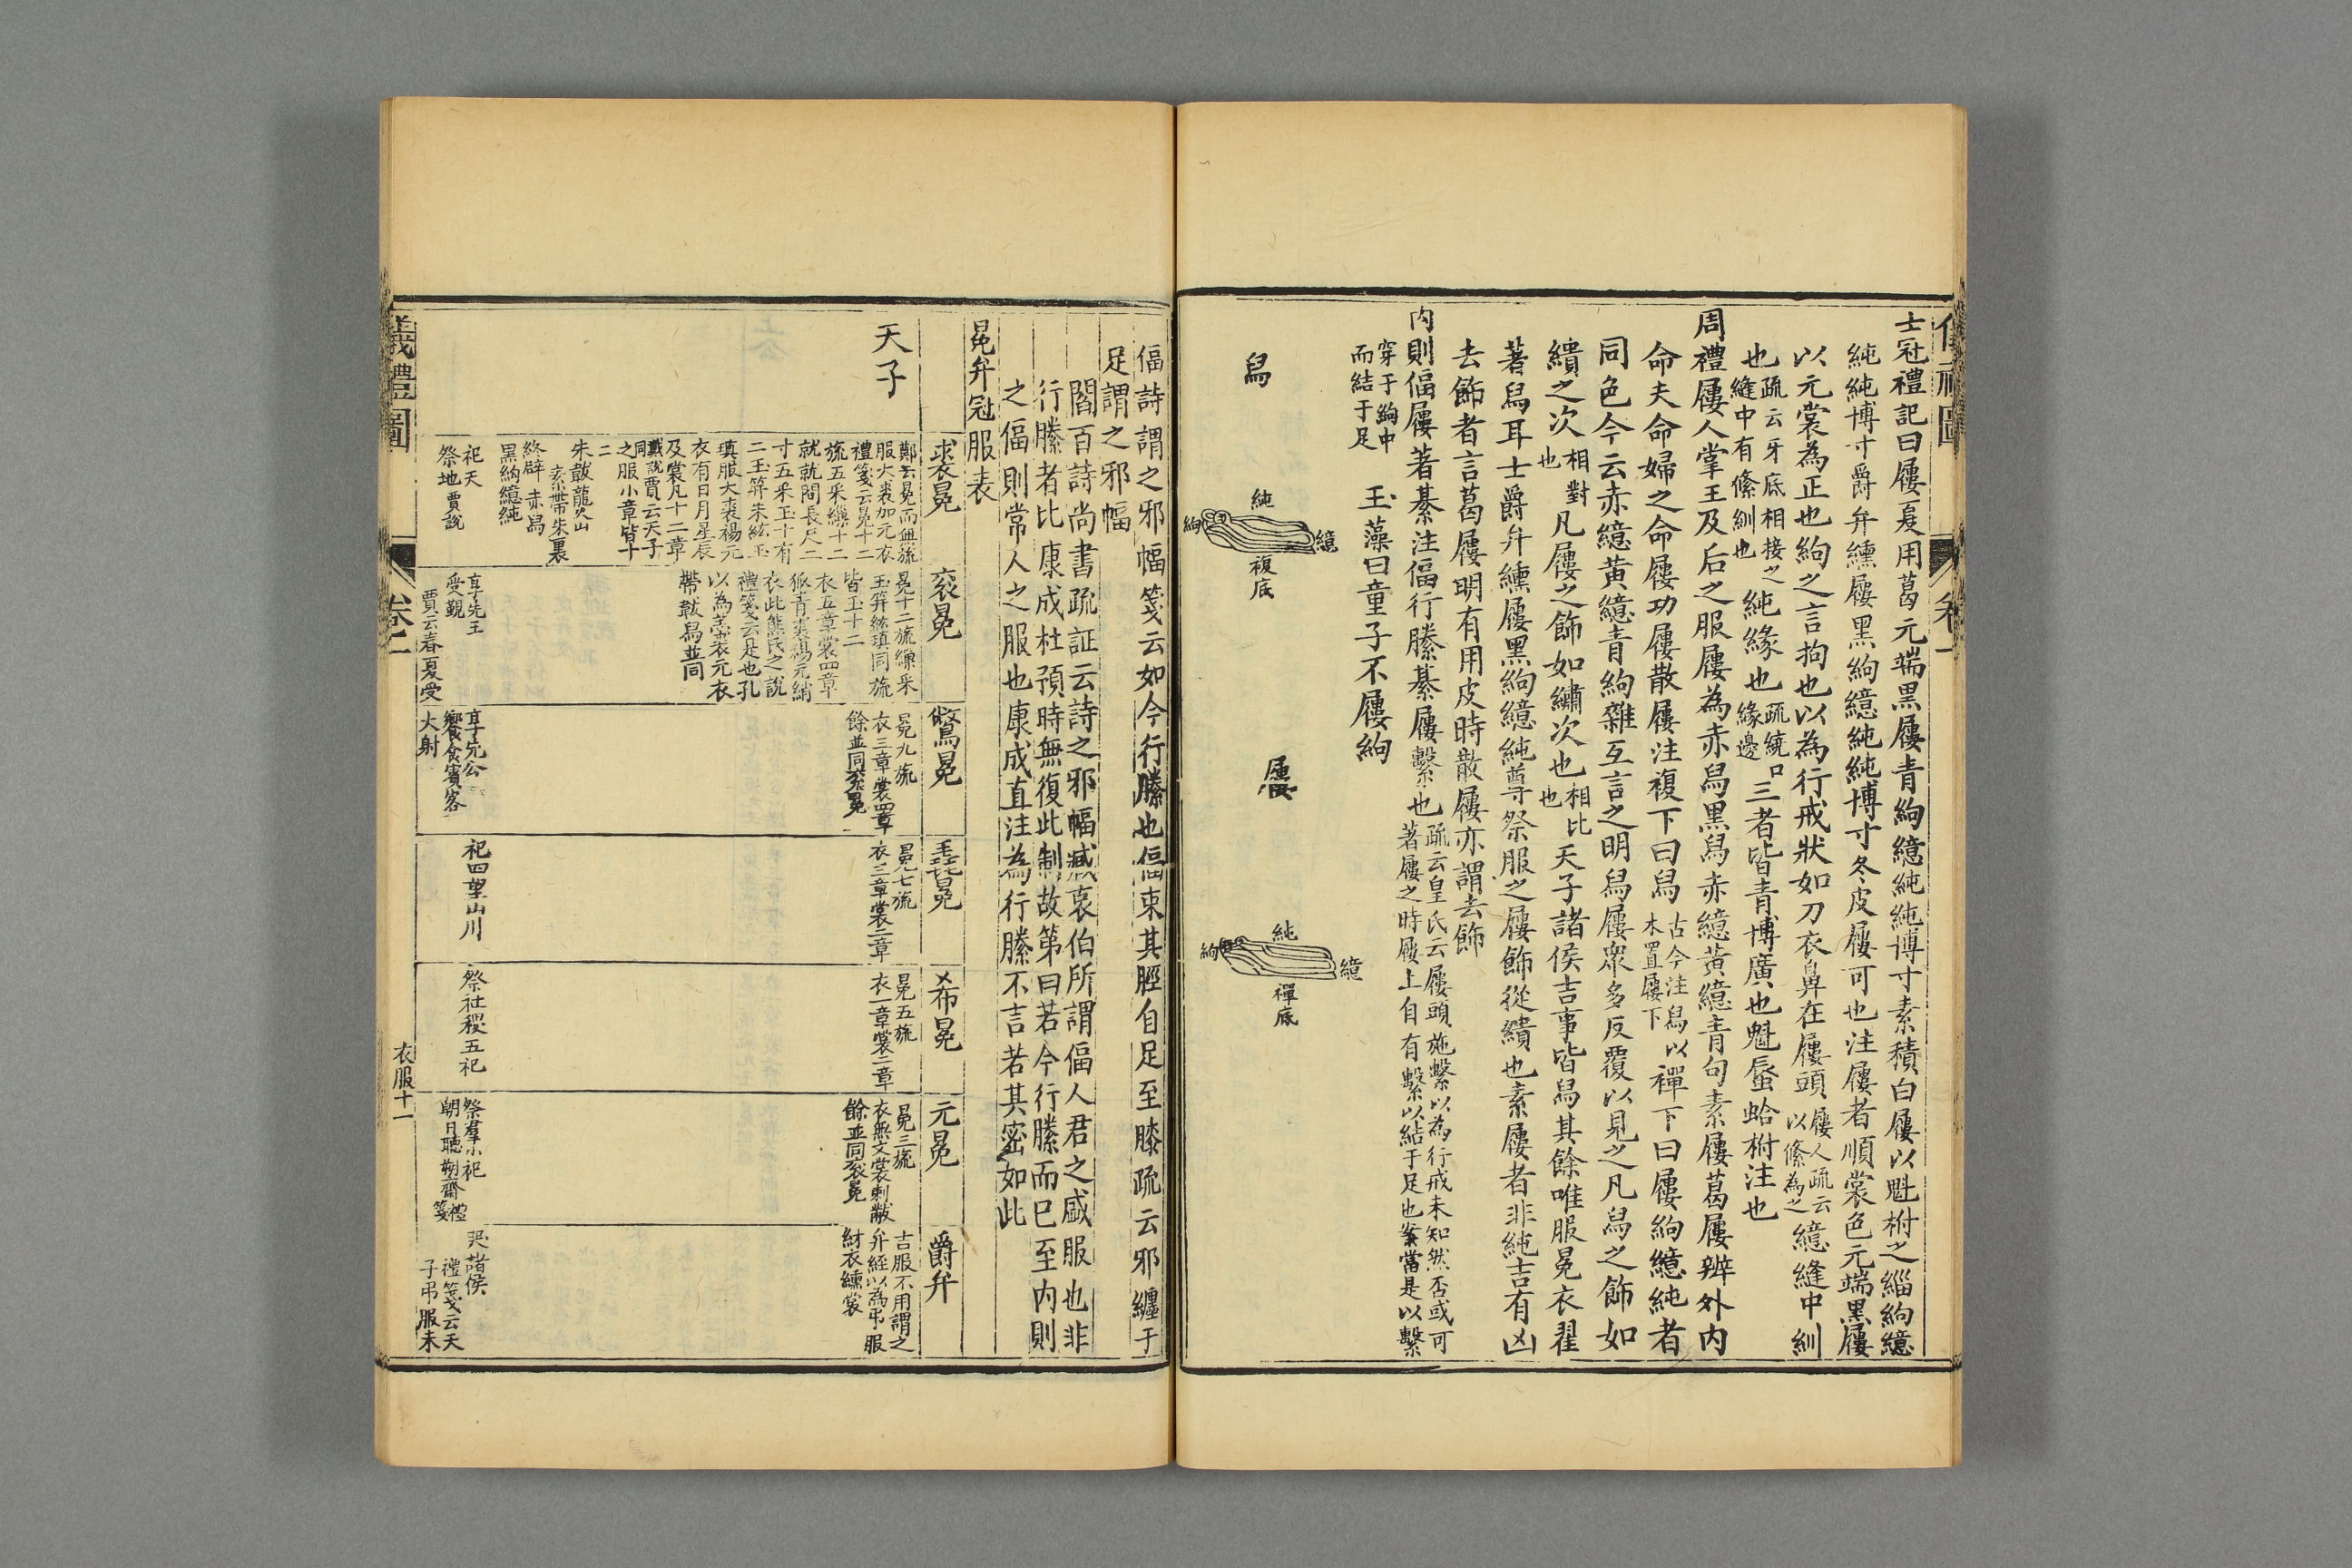 士冠禮記曰屨夏用葛元端黑屨青絇繶純純博寸素積白屨以魁柎之緇絇繶
純純博寸爵弁纁屨黑絇繶純純博寸冬皮屨可也注屨者順裳色元端黑屨
以元裳為正也絇之言拘也以為行戒狀如刀衣鼻在屨頭屨人疏云以絛為之繶縫中紃
也疏云牙底相接之縫中有絛紃也純緣也疏繞口緣邊三者皆青博廣也魁蜃蛤柎注也
周禮屨人掌王及后之服屨為赤舄黑舄赤繶黃繶青句素屨葛屨辨外內
命夫命婦之命屨功屨散屨注複下曰舄古今注舄以木置屨下禪下曰屨絇繶純者
同色今云赤繶黃繶青絇雜互言之明舄屨眾多反覆以見之凡舄之飾如
繢之次相對也凡屨之飾如繡次也相比也天子諸侯吉事皆舄其餘唯服冕衣翟
著舄耳士爵弁纁屨黑絇繶純尊祭服之屨飾從繢也素屨者非純吉有凶
去飾者言葛屨明有用皮時散屨亦謂去飾
內則偪屨著綦注偪行縢綦屨繫也疏云皇氏云屨頭施繫以為行戒未知然否或可著屨之時屨上自有繫以結于足也案當是以繫
穿于絇中而結于足 玉藻曰童子不屨絇
舄
純
絇
繶
複底
屨
純
絇
繶
禪底
卷一
偪詩謂之邪幅箋云如今行縢也偪束其脛自足至膝疏云邪纏于
足謂之邪幅
閻百詩尚書疏証云詩之邪幅臧哀伯所謂偪人君之盛服也非
行縢者比康成杜預時無復此制故第曰若今行縢而已至內則
之偪則常人之服也康成直注為行縢不言若其密如此
冕弁冠服表
裘冕
袞冕
鷩冕
毳冕
希冕
元冕
爵弁
天子
鄭云冕而無旒
服大裘加元衣
禮箋云冕十二
旒五采繅十二
就就間長尺二
寸五采玉十有
二玉笄朱紘玉
瑱服大裘裼元
衣有日月星辰
及裳凡十二章
戴說同賈云天子
之服小章皆十
二
朱韍龍火山
素帶朱裏
終辟 赤舄
黑絇繶純
祀天
祭地 賈說
冕十二旒繅采
玉笄紘瑱同旒
皆玉十二
衣五章裳四章
狐青裘裼元綃
衣此熊氏之說
禮箋云是也孔
以為羔裘元衣
帶韍舄並同
享先王
受覲
賈云春夏受
冕九旒
衣三章裳四章
餘並同袞冕
享先公
饗食賓客
大射
冕七旒
衣三章裳二章
祀四望山川
冕五旒
衣一章裳二章
祭社稷五祀
冕三旒
衣無文裳刺黻
餘並同袞冕
祭羣小祀
朝日聽朔齋禮箋
吉服不用謂之
弁絰以為弔服
紂衣纁裳
哭諸侯
禮箋云天
子弔服未
儀禮圖
卷二
衣服十一